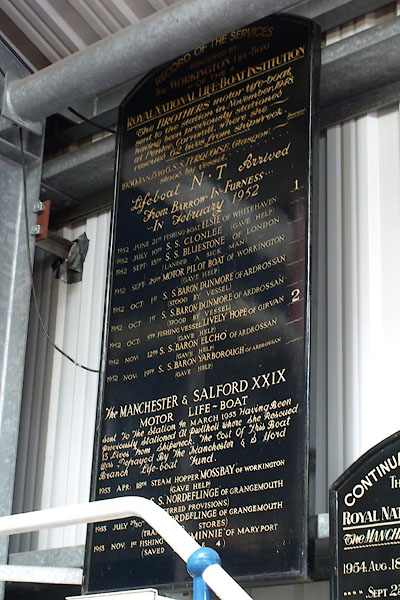 RECORD OF THE SERVICES
RENDERED BY
THE WORKINGTON LIFE-BOAT
OF THE
ROYAL NATIONAL LIFE-BOAT INSTITUTION
The BROTHERS motor life-boat,
sent to the station in November, 1948,
having been previously stationed
at Penlee, Cornwall, where she
rescued 62 lives from shipwreck
1950 JAN. S.S. TURQUOISE, Glasgow.
Stood by vessel.
Lifeboat N.T Arrived
From BARROW-IN-FURNESS
In February 1952 1
1952 JUNE FISHING BOAT ELSIE OF WHITEHAVEN
(GAVE HELP)
1952 JULY 10TH S.S. CLONLEE
1952 SEPT. S.S. BLUESTONE OF LONDON
(LANDED A SICK MAN)
1952 SEPT. 20TH MOTOR PILOT BOAT OF WORKINGTON
(GAVE HELP)
1952 OCT 1ST S.S. BARON DUNMORE OF ARDROSSAN
(STOOD BY VESSEL)
1952 OCT 1ST S.S. BARON DUNMORE OF ARDROSSAN
(STOOD BY VESSEL)
1952 OCT 5TH FISHING VESSEL LIVELY HOPE OF GIRVAN 2
(GAVE HELP)
1952 NOV. 12TH S.S. BARON ELCHO OF ARDROSSAN
(GAVE HELP)
1952 NOV. 19TH S.S. BARON YARBOROUGH OF ARDROSSAN
(GAVE HELP)
The MANCHESTER & SALFORD XXIX
MOTOR LIFE-BOAT
Sent To The Station In MARCH 1953 Having Been
Previously stationed at Pwllheli where She Rescued
15 Lives from Shipwreck. The Cost Of This Boat
Was Defrayed By The Manchester & S ford
Branch Life-boat Fund.
1953 APR. 18TH STEAM HOPPER MOSSBAY OF WORKINGTON
(GAVE HELP)
S.S. NORDEFLINGE OF GRANGEMOUTH
RRED PROVISIONS)
1953 JULY NORDEFLINGE OF GRANGEMOUTH
(TRA STORES)
1953 NOV. 1ST FISHING MINNIE OF MARYPORT
(SAVED 4)
CONTINU
THE
ROYAL NAT
The MANCH
1954 AUG. 18
SEPT 2